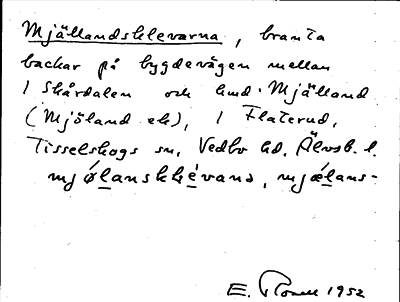 Mjällandsklevarna, branta
backar på bygdevägen mellan
1 Skårdalen och lund. Mjälland
(Mjöland ek), 1 Flaterud,
Tisselskogs sn, Vedbo hd, Älvsb. l.
mjǿlansklḗvana, mjǽlans-
E. 1952